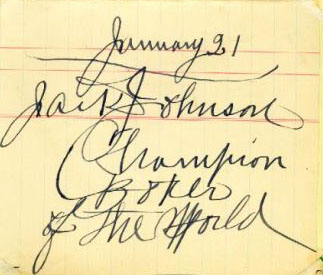 January 21
Jack Johnson
Champion
Boxer
of The World